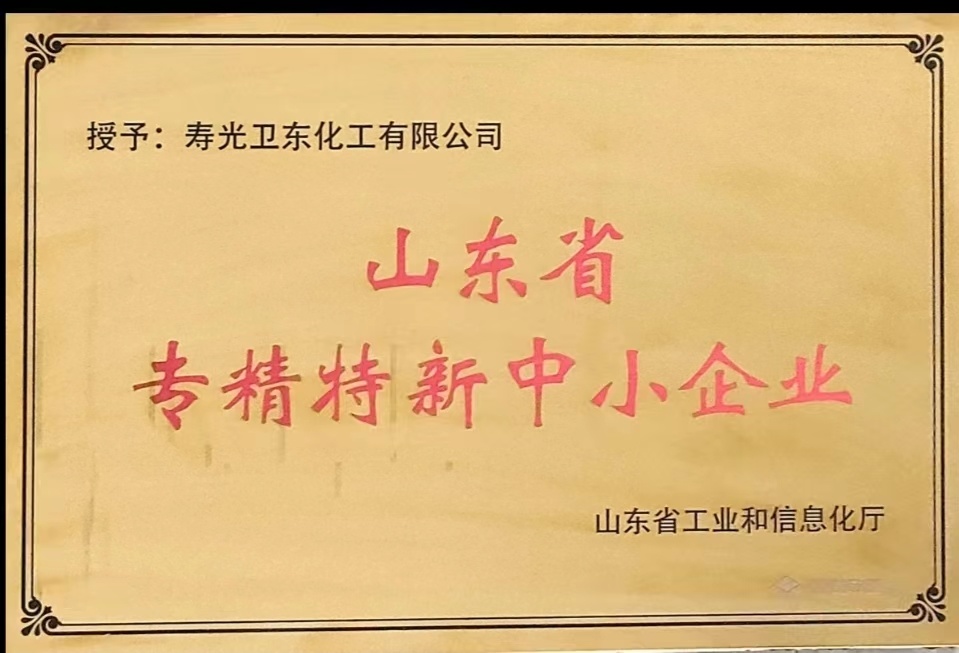 授予：寿光卫东化工有限公司
山东省
专精特新中小企业
山东省工业和信息化厅